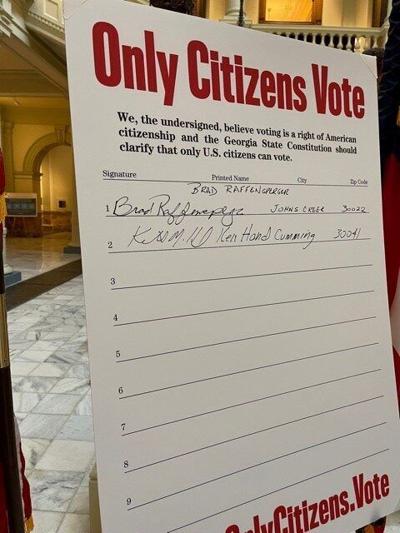 Only Citizens Vote
We, the undersigned, believe voting is a right of American
citizenship and the Georgia State Constitution should
clarify that only U.S. citizens can vote.
Signature Printed Name City Zip Code
BRAD RAFFENSPERGER
1 Brad Raffensperger JOHNS CREEK 30022
2 Ken Hand Cumming 30041
3
4
5
6
7
8
9
OnlyCitizens.Vote